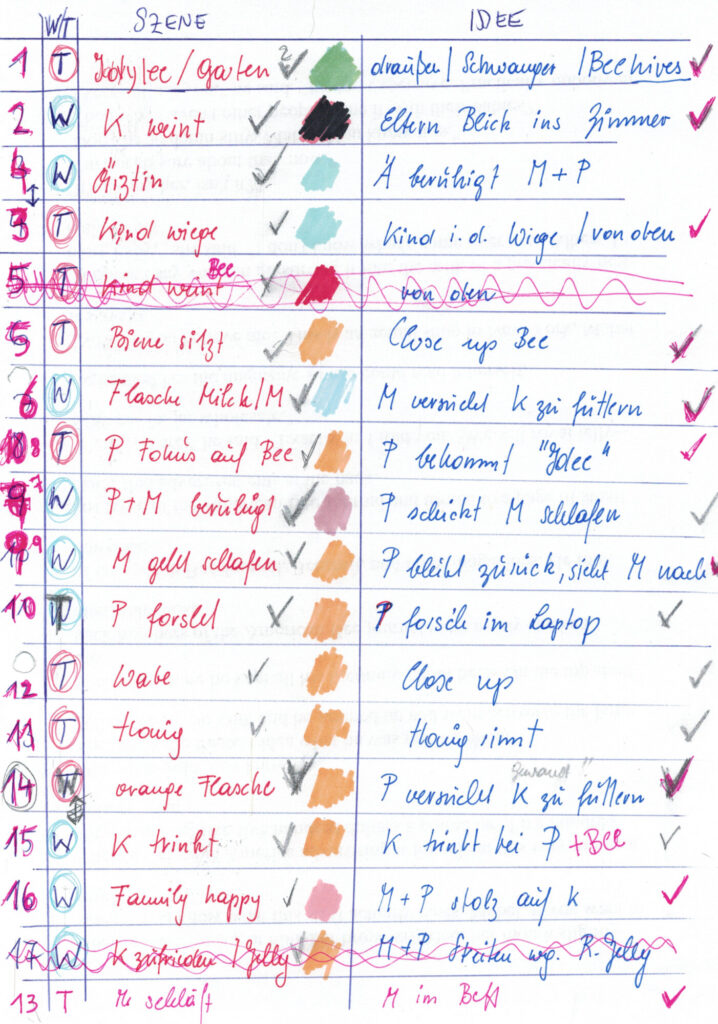 W/T SZENE IDEE
1 T /Garten 2 draußen / Schwanger / Beehives
2 W K weint Eltern Blick ins Zimmer
4 W Ärztin Ä beruhigt M+P
3 T Kind wiege Kind i.d. Wiege / von oben
5 T Kind weint Bee von oben
5 T Biene sitzt Close up Bee
6 W Flasche Milch/M M versucht K zu füttern
8 T P Fokus auf Bee P bekommt "Idee"
7 W P+M beruhigt P schickt M schlafen
9 W M geht schlafen P bleibt zurück, sieht M nach
10 T P forscht P forscht im Laptop
12 T Wabe Close up
11 T Honig Honig rinnt
14 W orange Flasche P versucht K zu füttern
15 W K trinkt K trinkt bei P +Bee
16 W Family happy M+P stolz auf K
17 W K zufrieden / Jelly M+P Streiten wg. R. Jelly
13 T M schläft M im Bett